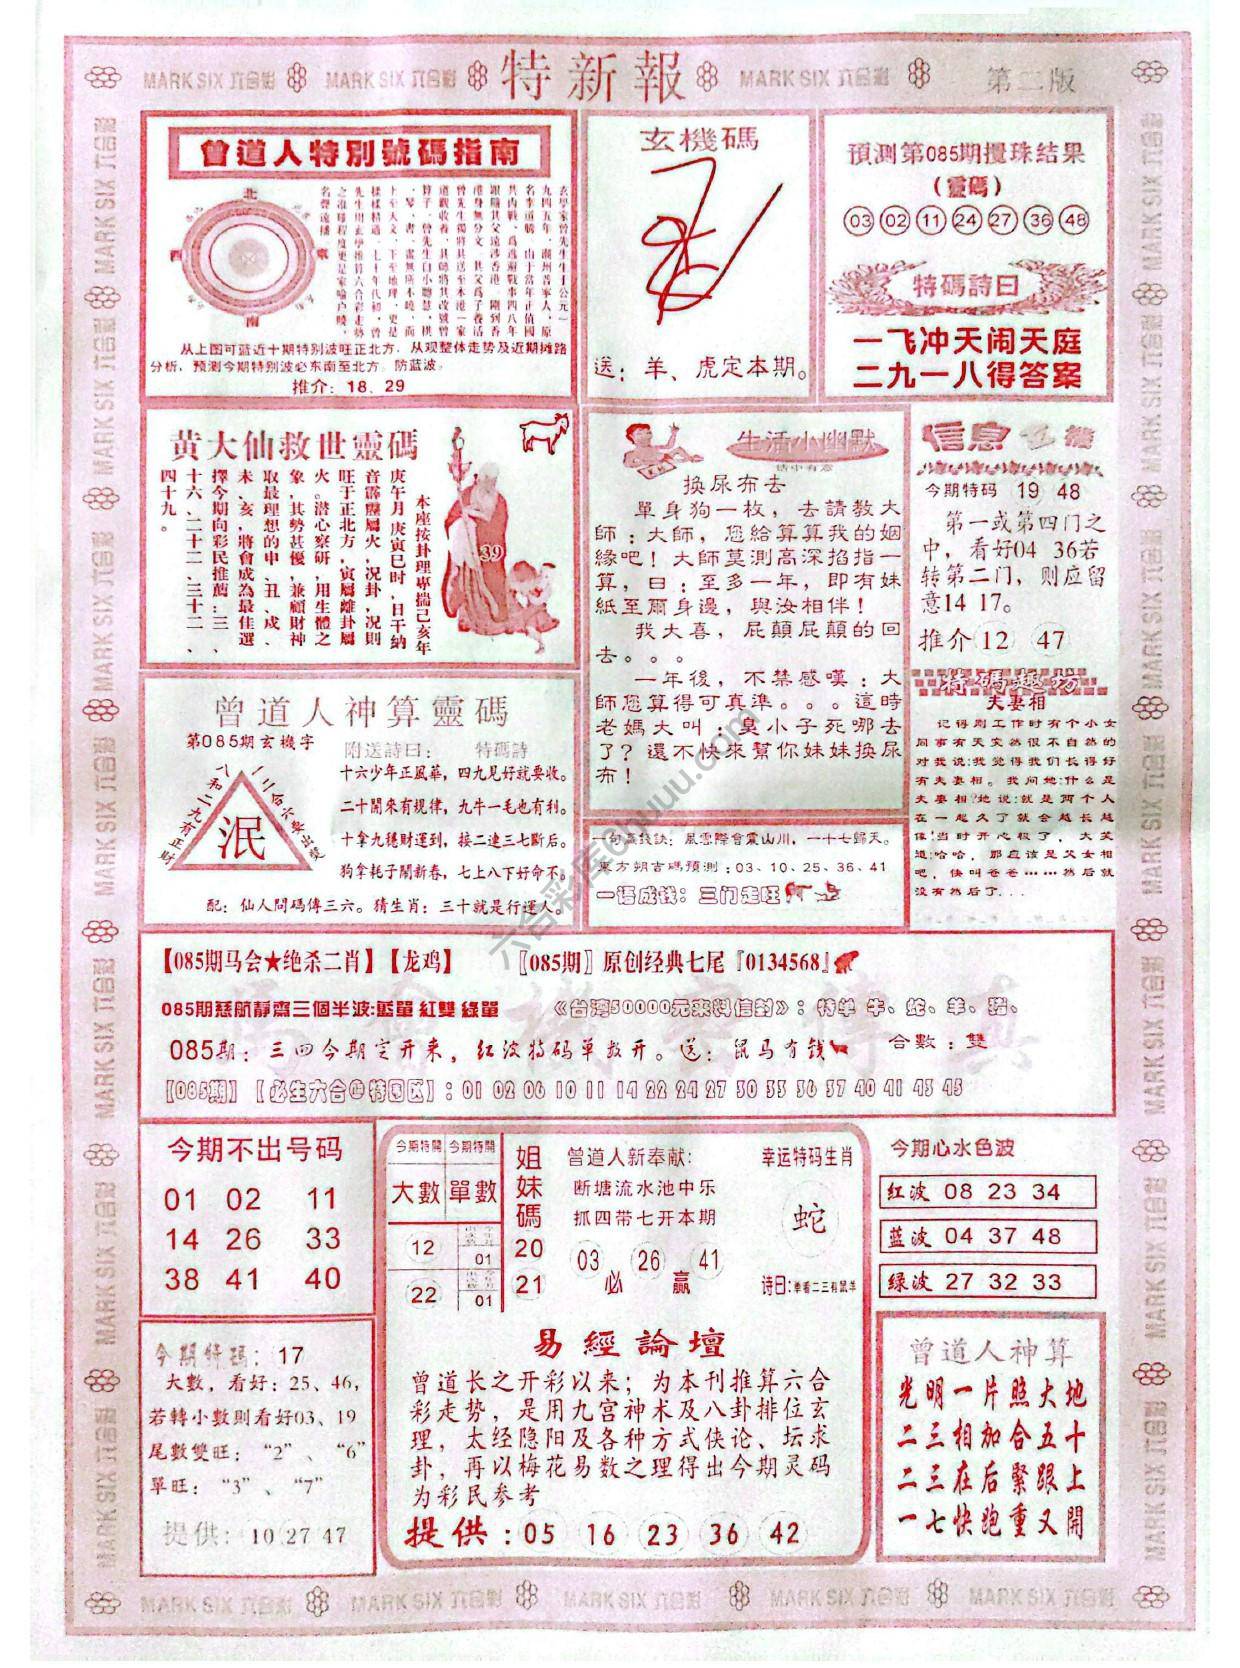 MARK SIX 六合彩 MARK SIX 六合彩 特新報 MARK SIX 六合彩 第二版
曾道人特別號碼指南
北
西
東
南
玄學家曾先生生于公元一
九四五年，潮州普寧人，原
名李道勝，由于當年正值國
共内戰，爲逃避戰事四八年
跟隨其父遠涉香港，剛到香
港身無分文，其父爲了養活
曾先生獨將其送至本港一家
道觀收養，其師將其改號曾
算子，曾先生自小聰慧，棋
、琴、書、畫無所不曉，而
上至天文，下至地理，更是
樣樣精通，七十年代初，曾
先生用玄學推算六合彩走勢
之准確程度更是家喻户曉，
名聲遠播。
从上图可蓝近十期特别波旺正北方，从观整体走势及近期摊路
分析，预测今期特别波必东南至北方。防蓝波。
推介：18、29
玄機碼
送：羊、虎定本期。
預測第085期攪珠结果
（靈碼）
03 02 11 24 27 36 48
特碼詩曰
一飞冲天闹天庭
二九一八得答案
黄大仙救世靈碼
39
本座按卦理專揣己亥年
庚午月庚寅巳时，日干纳
音霹靂屬火，况卦，况則
旺于正北方，寅屬離卦屬
火。潜心察研，用生體之
象，其勢甚優，兼顧財神
取最理想的申、丑、戌、
未、亥，將會成為最佳選
擇今期向彩民推薦：三、
十六、二十二、三十二、
四十九。
生活小幽默
话中有意
换尿布去
單身狗一枚，去請教大
師：大師，您給算算我的姻
緣吧！大師莫測高深掐指一
算，曰：至多一年，即有妹
紙至爾身邊，與汝相伴！
我大喜，屁顛屁顛的回
去。。。
一年後，不禁感嘆：大
師您算得可真準。。。這時
老媽大叫：臭小子死哪去
了？還不快來幫你妹妹换尿
布！
信息玄機
今期特码 19 48
第一或第四门之
中，看好04 36若
转第二门，则应留
意14 17。
推介 12 47
特碼趣坊
夫妻相
记得刚工作时有个小女
同事有天突然很不自然的
对我说:我觉得我们长得好
有夫妻相。我问她:什么是
夫妻相?她说:就是两个人
在一起久了就会越长越
像!当时开心极了，大笑
道:哈哈，那应该是父女相
吧，快叫爸爸……然后就
没有然后了...
曾道人神算靈碼
第085期玄機字
泯
八和二九有正财
一二三合六要出现
附送詩曰： 特碼詩
十六少年正風華，四九見好就要收。
二十開來有規律，九牛一毛也有利。
十拿九穩財運到，接二連三七斷后。
狗拿耗子鬧新春，七上八下好命不。
配：仙人問碼傳三六。猜生肖：三十就是行運人。
一句贏錢訣：風雲際會震山川，一十七歸天。
東方朔吉碼預測：03、10、25、36、41
一语成钱：三门走旺
【085期马会★绝杀二肖】【龙鸡】 〖085期〗原创经典七尾『0134568』
085期慈航靜齋三個半波:藍單 紅雙 綠單 《台湾50000元来料信封》：特单 牛、蛇、羊、猪、
085期：三四今期定开来，红波特码单数开。送：鼠马有钱 合數：雙
【085期】【必生六合@特围区】：01 02 06 10 11 14 22 24 27 30 33 36 37 40 41 43 45
馬會機密傳真
今期不出号码
01 02 11
14 26 33
38 41 40
今期特開 今期特開
大數 單數
12
01
22
01
姐妹碼
20
21
曾道人新奉献:
断塘流水池中乐
抓四带七开本期
03 26 41
必 赢
幸运特码生肖
蛇
诗曰:单看二三有鼠羊
今期心水色波
红波 08 23 34
蓝波 04 37 48
绿波 27 32 33
今期特码：17
大數，看好：25、46，
若轉小數則看好03、19
尾數雙旺：“2”、“6”
單旺：“3”、“7”
提供：10 27 47
易經論壇
曾道长之开彩以来；为本刊推算六合
彩走势，是用九宫神术及八卦排位玄
理，太经隐阳及各种方式侠论、坛求
卦，再以梅花易数之理得出今期灵码
为彩民参考
提供：05 16 23 36 42
曾道人神算
光明一片照大地
二三相加合五十
二三在后緊跟上
一七快跑重又開
MARK SIX 六合彩 MARK SIX 六合彩 MARK SIX 六合彩 MARK SIX 六合彩 MARK SIX 六合彩
六合彩库6huuu.com